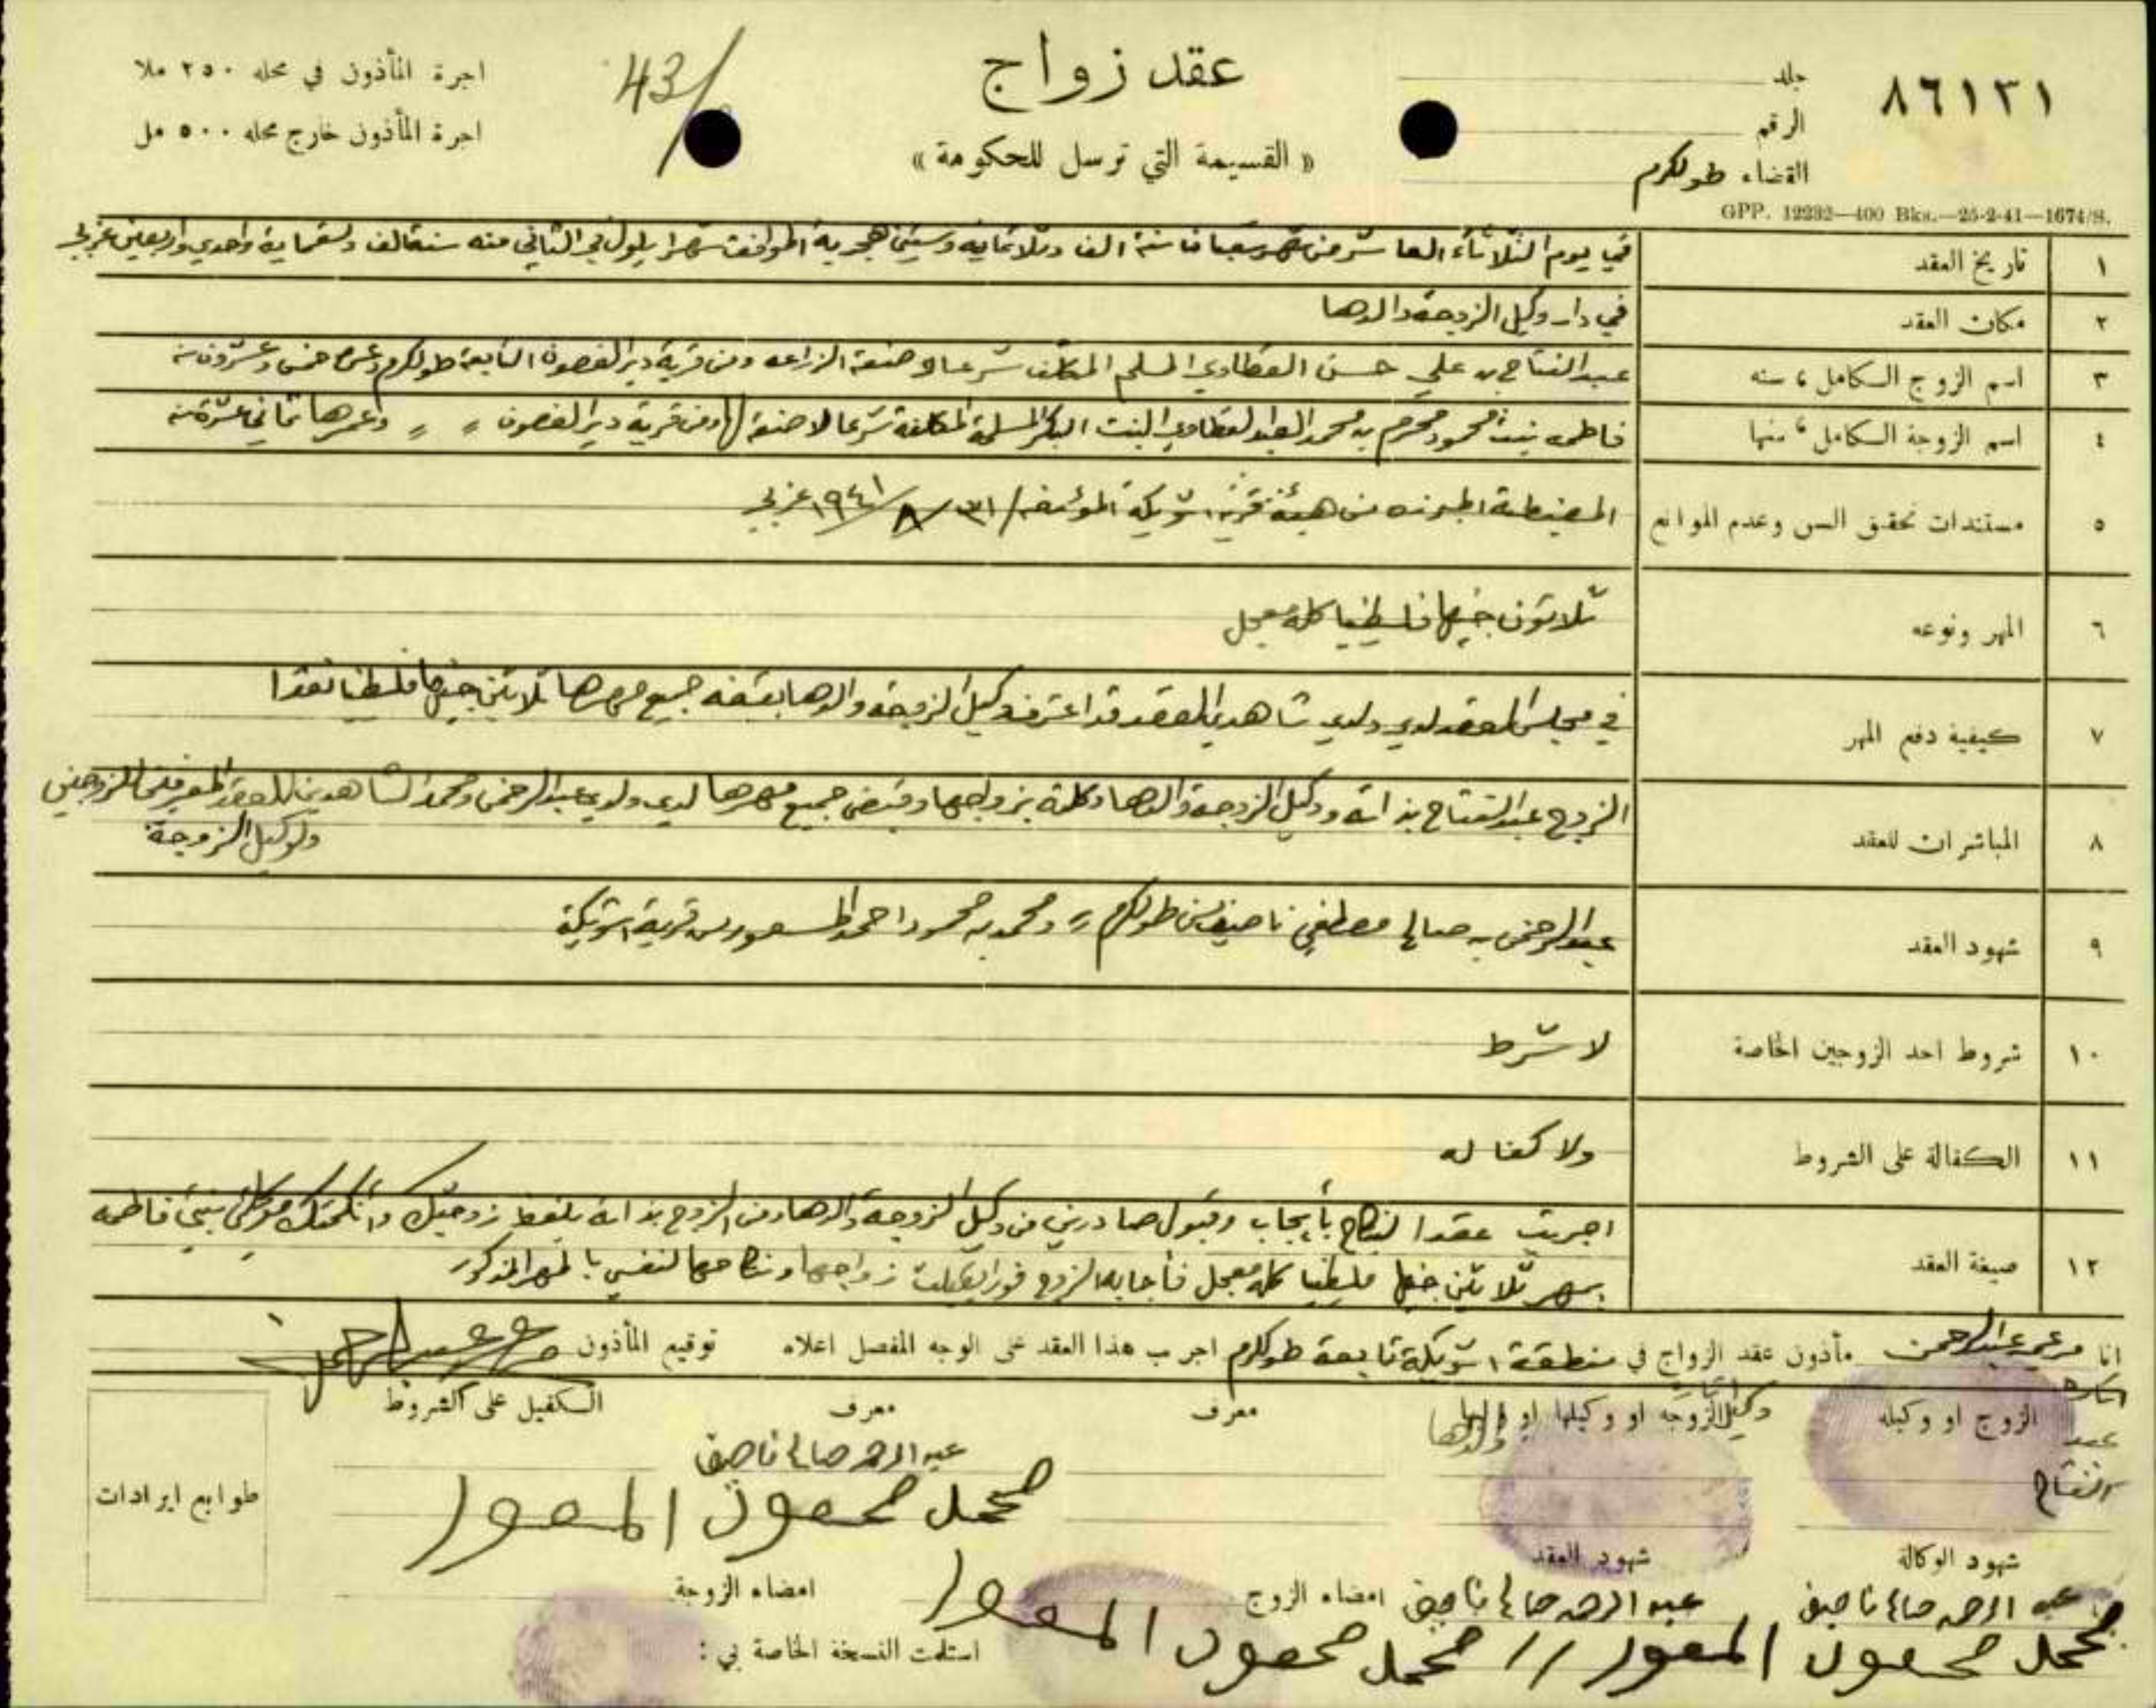 ٨٦١٣١
جلد
الرقم
القضاء طولكرم
عقد زواج
« القسيمة التي ترسل للحكومة »
43/
اجرة المأذون في محله ٢٥٠ ملا
اجرة المأذون خارج محله ٥٠٠ مل
GPP. 12232—400 Bks.—25-2-41—1674/S.
١ تاريخ العقد في يوم الثلاثاء العاشر من شهر شعبان سنة الف وثلاثمايه وستين هجرية الموافق شهر ايلول في الثاني منه سنة الف وتسعماية واحدي واربعين غربي
٢ مكان العقد في دار وكيل الزوجة والدها
٣ اسم الزوج الكامل ، سنه عبد الفتاح بن علي حسن القطاوي المسلم المكلف شرعا صنعة الزراعه ومن قرية دير الغصون التابعة طولكرم وعمره خمس وعشرون سنة
٤ اسم الزوجة الكامل ، سنها فاطمه بنت محمود محرم بن محمد العبد القطاوي البنت البكر المسلمة المكلفة شرعا لا صنعة لها ومن قرية دير الغصون 〃 〃 وعمرها ثماني عشرة سنة
٥ مستندات تحقق السن وعدم الموانع المضبطة من هيئة قرية شويكة المؤرخه ٣١/٨/١٩٤١ غربي
٦ المهر ونوعه ثلاثون جنيها فلسطينيا كله معجل
٧ كيفية دفع المهر في مجلس العقد لدي ولدي شاهدي العقد قد اعترف وكيل الزوجة والدها بقبضه جميع مهرها ثلاثين جنيها فلسطينيا نقدا
٨ المباشران للعقد الزوج عبد الفتاح بذاته ووكيل الزوجة والدها وكلته بزواجها وقبض جميع مهرها لدي ولدي عبد الرحمن ومحمد الشاهدين للعقد المعرفين للزوجين
ولوكيل الزوجة
٩ شهود العقد عبد الرحمن بن صالح مصطفى ناصيف من طولكرم ومحمد بن محمود احمد المسعور من قرية شويكة
١٠ شروط احد الزوجين الخاصة لا شرط
١١ الكفالة على الشروط ولا كفاله
١٢ صيغة العقد اجريت عقد النكاح بأيجاب وقبول صادرين من وكيل الزوجة والدها ومن الزوج بذاته بلفظ زوجتك وأنكحتك موكلتي بنتي فاطمه
بمهر ثلاثين جنيها فلسطينيا كله معجل فأجابه الزوج فورا قبلت زواجها ونكاحها لنفسي بالمهر المذكور
انا مرعي عبد الرحمن مأذون عقد الزواج في منطقة شويكة تابعة طولكرم اجريت هذا العقد على الوجه المفصل اعلاه توقيع المأذون
الزوج او وكيله وكيل الزوجه او وكيلها او وليها والدها معرف معرف الكفيل على الشروط
عبد الفتاح
عبد الرحمن صالح ناصيف
محمد محمود المسعور
طوابع ايرادات
شهود الوكالة شهود العقد
امضاء الزوج امضاء الزوجة
عبد الرحمن صالح ناصيف عبد الرحمن صالح ناصيف
محمد محمود المسعور // محمد محمود المسعور
استلمت النسخة الخاصة بي :